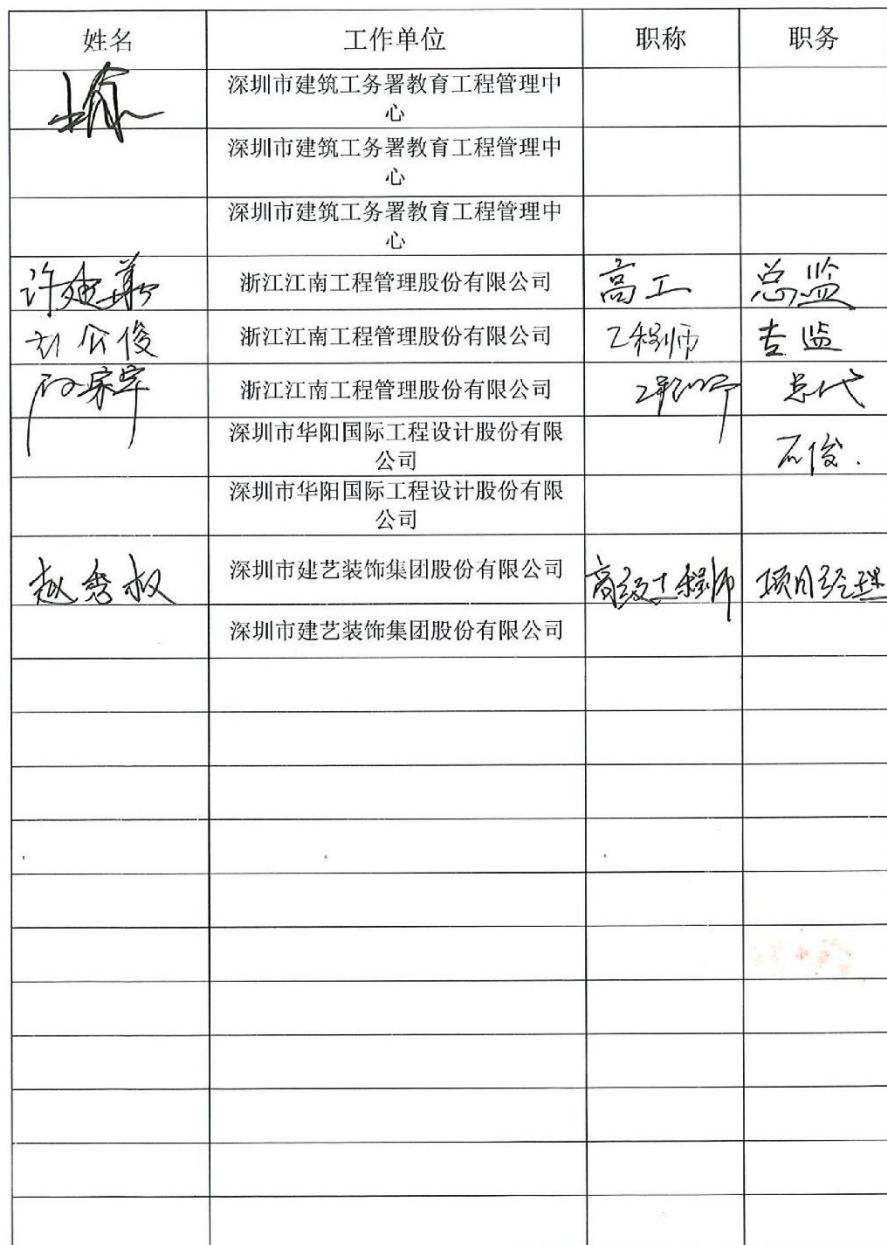 姓名 工作单位 职称 职务
深圳市建筑工务署教育工程管理中
心
深圳市建筑工务署教育工程管理中
心
深圳市建筑工务署教育工程管理中
心
许建 浙江江南工程管理股份有限公司 高工 总监
俊 浙江江南工程管理股份有限公司 工程师 专监
浙江江南工程管理股份有限公司 工程师 总代
深圳市华阳国际工程设计股份有限
公司 石俊.
深圳市华阳国际工程设计股份有限
公司
赵秀叔 深圳市建艺装饰集团股份有限公司 高级工程师 项目经理
深圳市建艺装饰集团股份有限公司